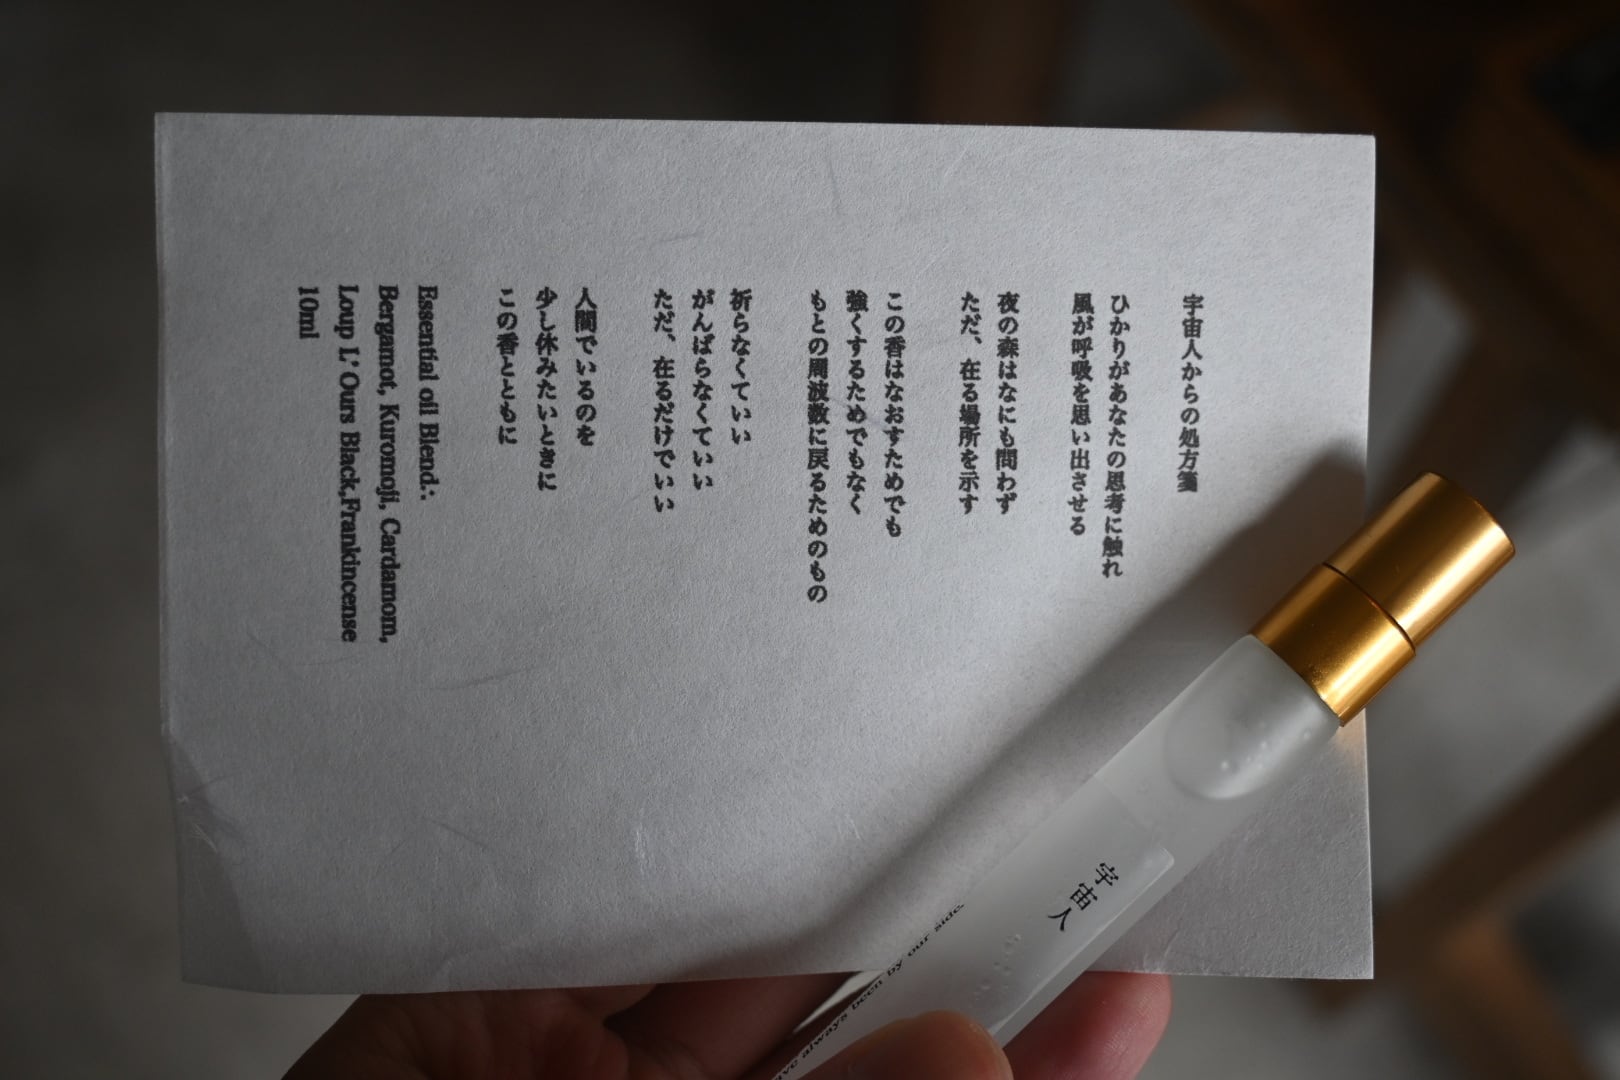 宇宙人からの処方箋
ひかりがあなたの思考に触れ
風が呼吸を思い出させる
夜の森はなにも問わず
ただ、在る場所を示す
この香はなおすためでも
強くするためでもなく
もとの周波数に戻るためのもの
祈らなくていい
がんばらなくていい
ただ、在るだけでいい
人間でいるのを
少し休みたいときに
この香とともに
Essential oil Blend.:
Bergamot, Kuromoji, Cardamom,
Loup L' Ours Black,Frankincense
10ml
宇宙人
always been by our side.